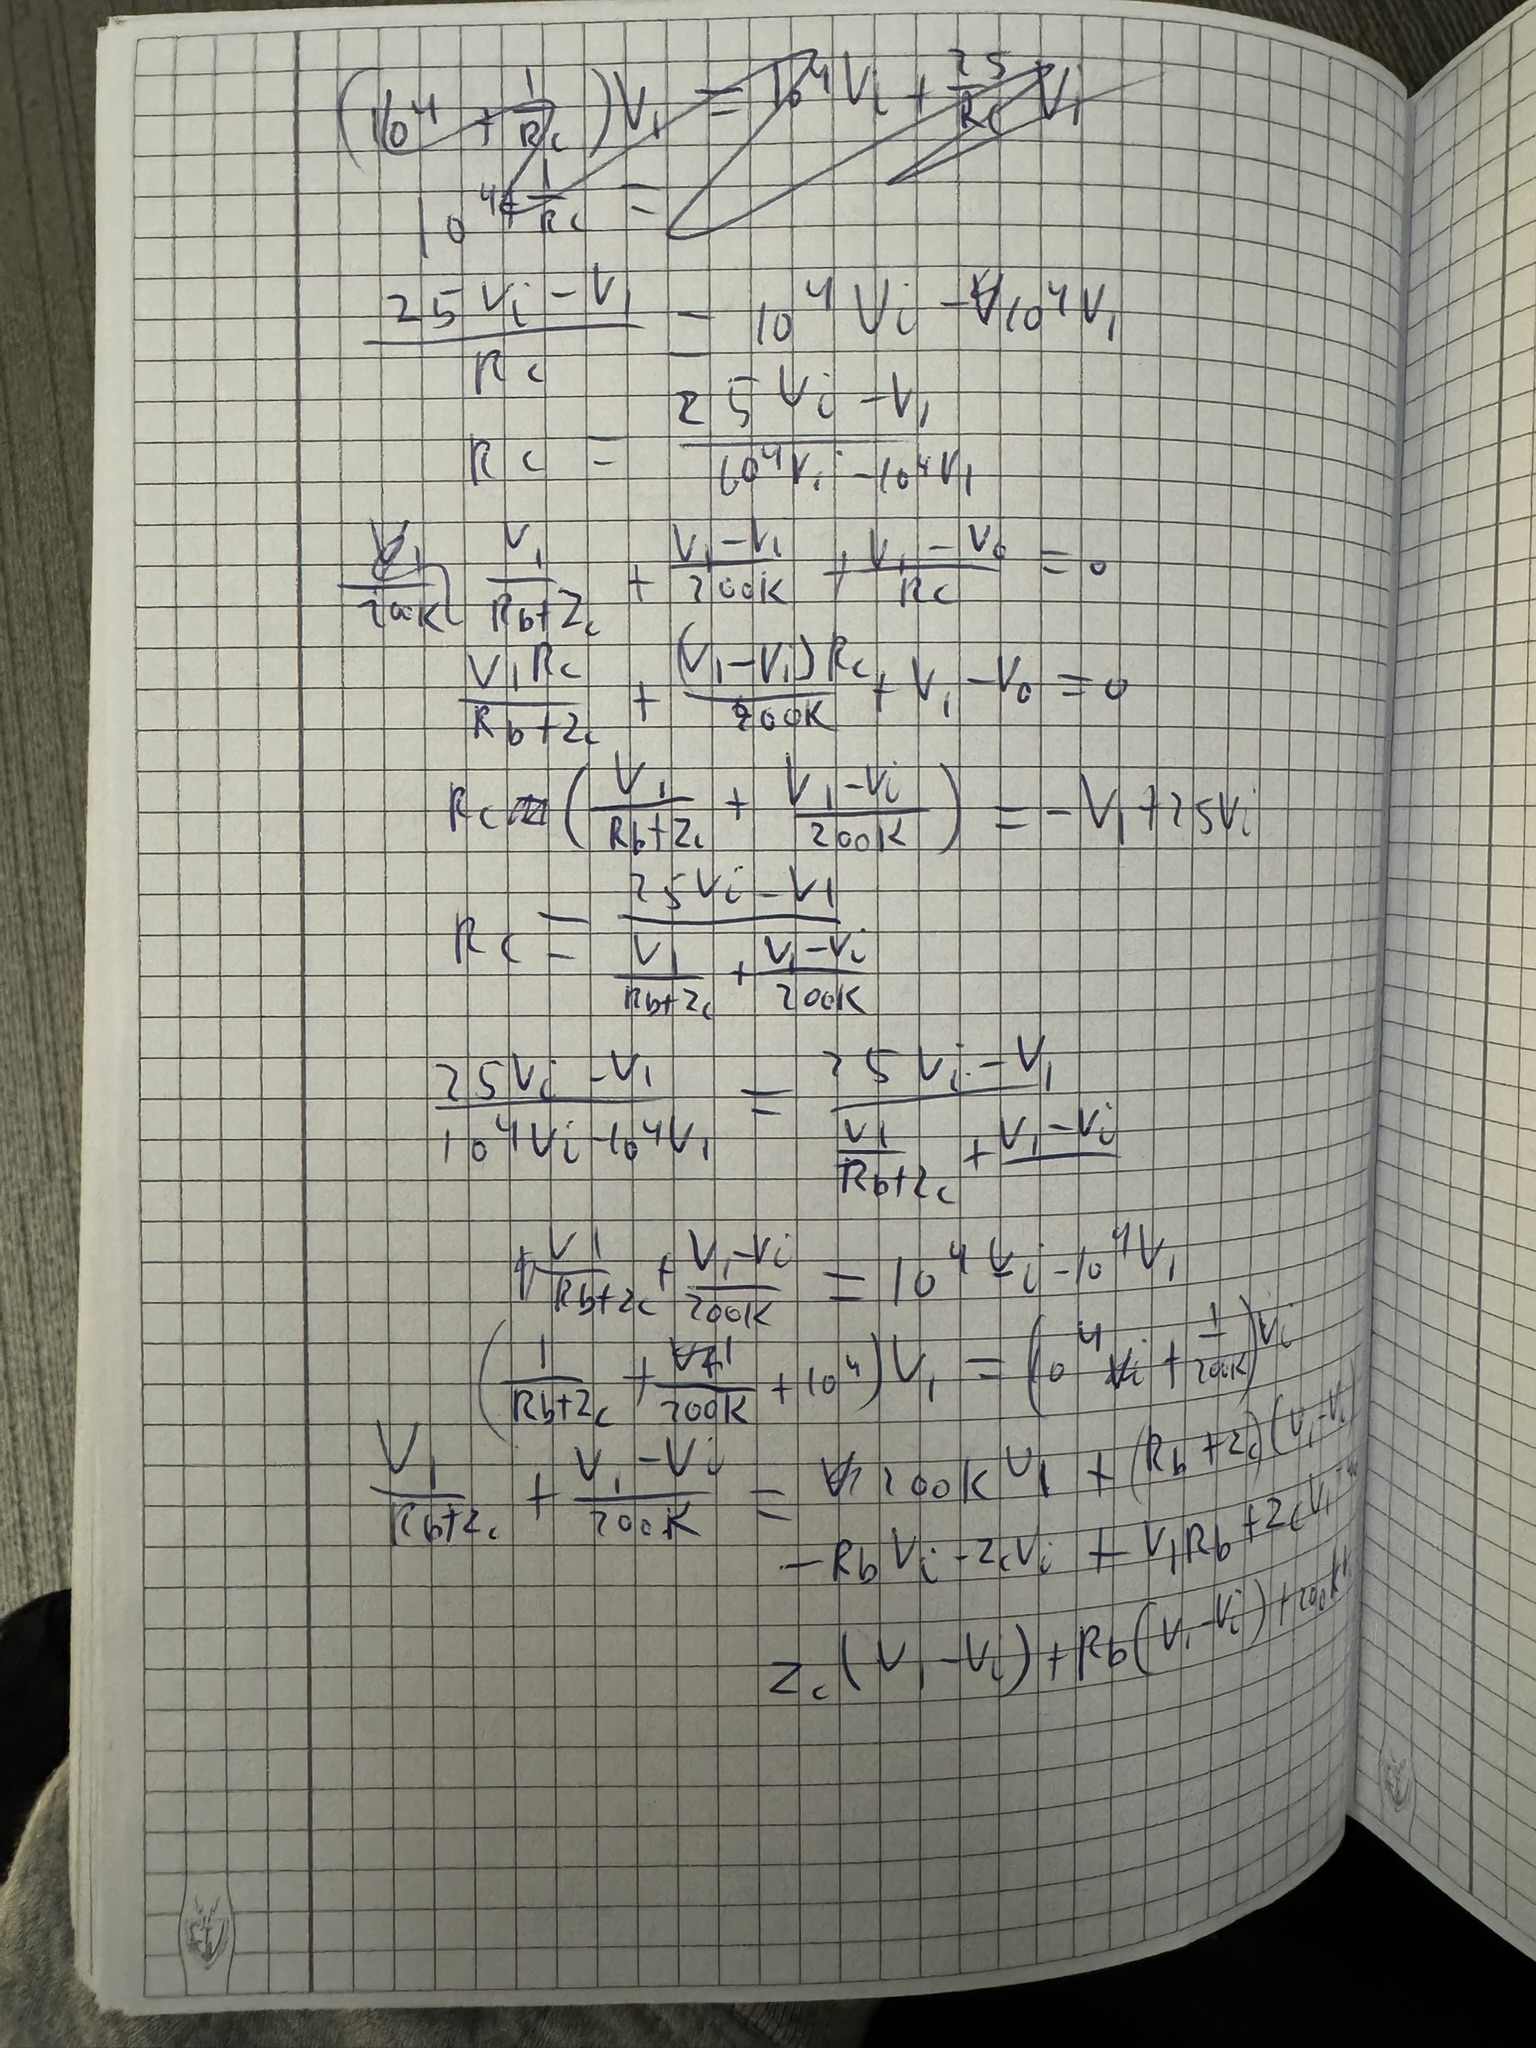 (10⁴ + 1/Rc)V₁ = 10⁴Vi + 25/Rc Vi
10⁴ + 1/Rc =
(25Vi - V₁)/Rc = 10⁴Vi - 10⁴V₁
Rc = (25Vi - V₁)/(10⁴Vi - 10⁴V₁)
V₁/200K V₁/(Rb+Zc) + (V₁-Vi)/200K + (V₁-V₀)/Rc = 0
V₁Rc/(Rb+Zc) + (V₁-Vi)Rc/200K + V₁ - V₀ = 0
Rc (V₁/(Rb+Zc) + (V₁-Vi)/200K) = -V₁ + 25Vi
Rc = (25Vi - V₁)/(V₁/(Rb+Zc) + (V₁-Vi)/200K)
(25Vi - V₁)/(10⁴Vi - 10⁴V₁) = (25Vi - V₁)/(V₁/(Rb+Zc) + V₁-Vi)
V₁/(Rb+Zc) + (V₁-Vi)/200K = 10⁴Vi - 10⁴V₁
(1/(Rb+Zc) + 1/200K + 10⁴)V₁ = (10⁴ + 1/200K)Vi
V₁/(Rb+Zc) + (V₁-Vi)/200K = 200K V₁ + (Rb+Zc)(V₁-Vi)
-RbVi - ZcVi + V₁Rb + ZcV₁
Zc(V₁-Vi) + Rb(V₁-Vi) + 200K